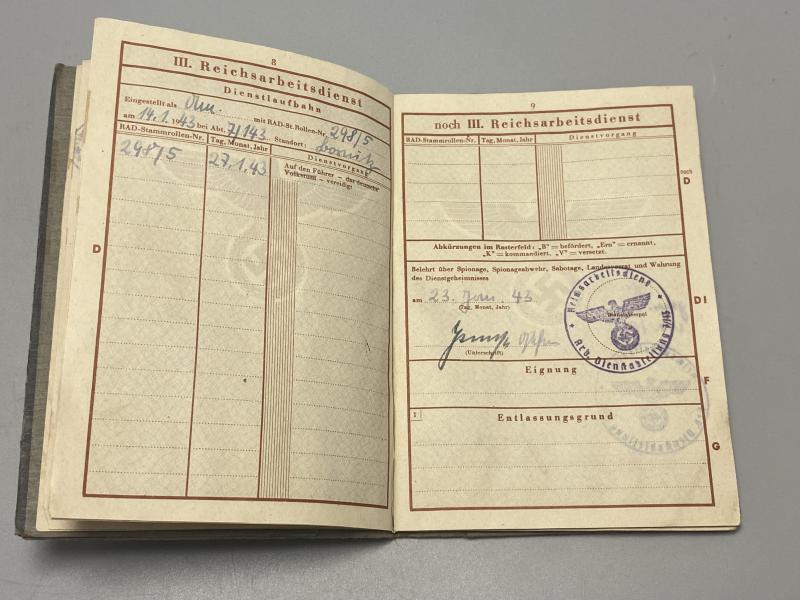 8
III. Reichsarbeitsdienst
Dienstlaufbahn
Eingestellt als Am. mit RAD-St.Rollen-Nr. 298/5
am 14.1.1943 bei Abt. 7/143 Standort:
RAD-Stammrollen-Nr. Tag, Monat, Jahr Dienstvorgang
298/5 27.1.43 Auf den Führer – das deutsche
Volkstum – vereidigt
D
9
noch III. Reichsarbeitsdienst
RAD-Stammrollen-Nr. Tag, Monat, Jahr Dienstvorgang
noch
D
Abkürzungen im Rasterfeld: „B"=befördert, „Ern"=ernannt,
„K"=kommandiert, „V"=versetzt.
Belehrt über Spionage, Spionageabwehr, Sabotage, Landesverrat und Wahrung
des Dienstgeheimnisses
am 23. Jan. 43
(Tag, Monat, Jahr)
Dienststempel
Reichsarbeitsdienst
DI
(Unterschrift)
Eignung
F
1
Entlassungsgrund
G